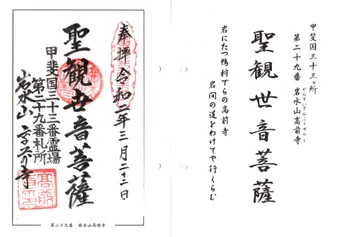 甲斐国三十三ヶ所
第二十九番 岩水山高前寺
聖観世音菩薩
岩にたつ
高前寺
岩間の道をわけてや行くらむ
奉拝 令和二年三月二十二日
聖観世音菩薩
甲斐国三十三番霊場
第二十九番札所
岩水山
第二十九番 岩水山高前寺